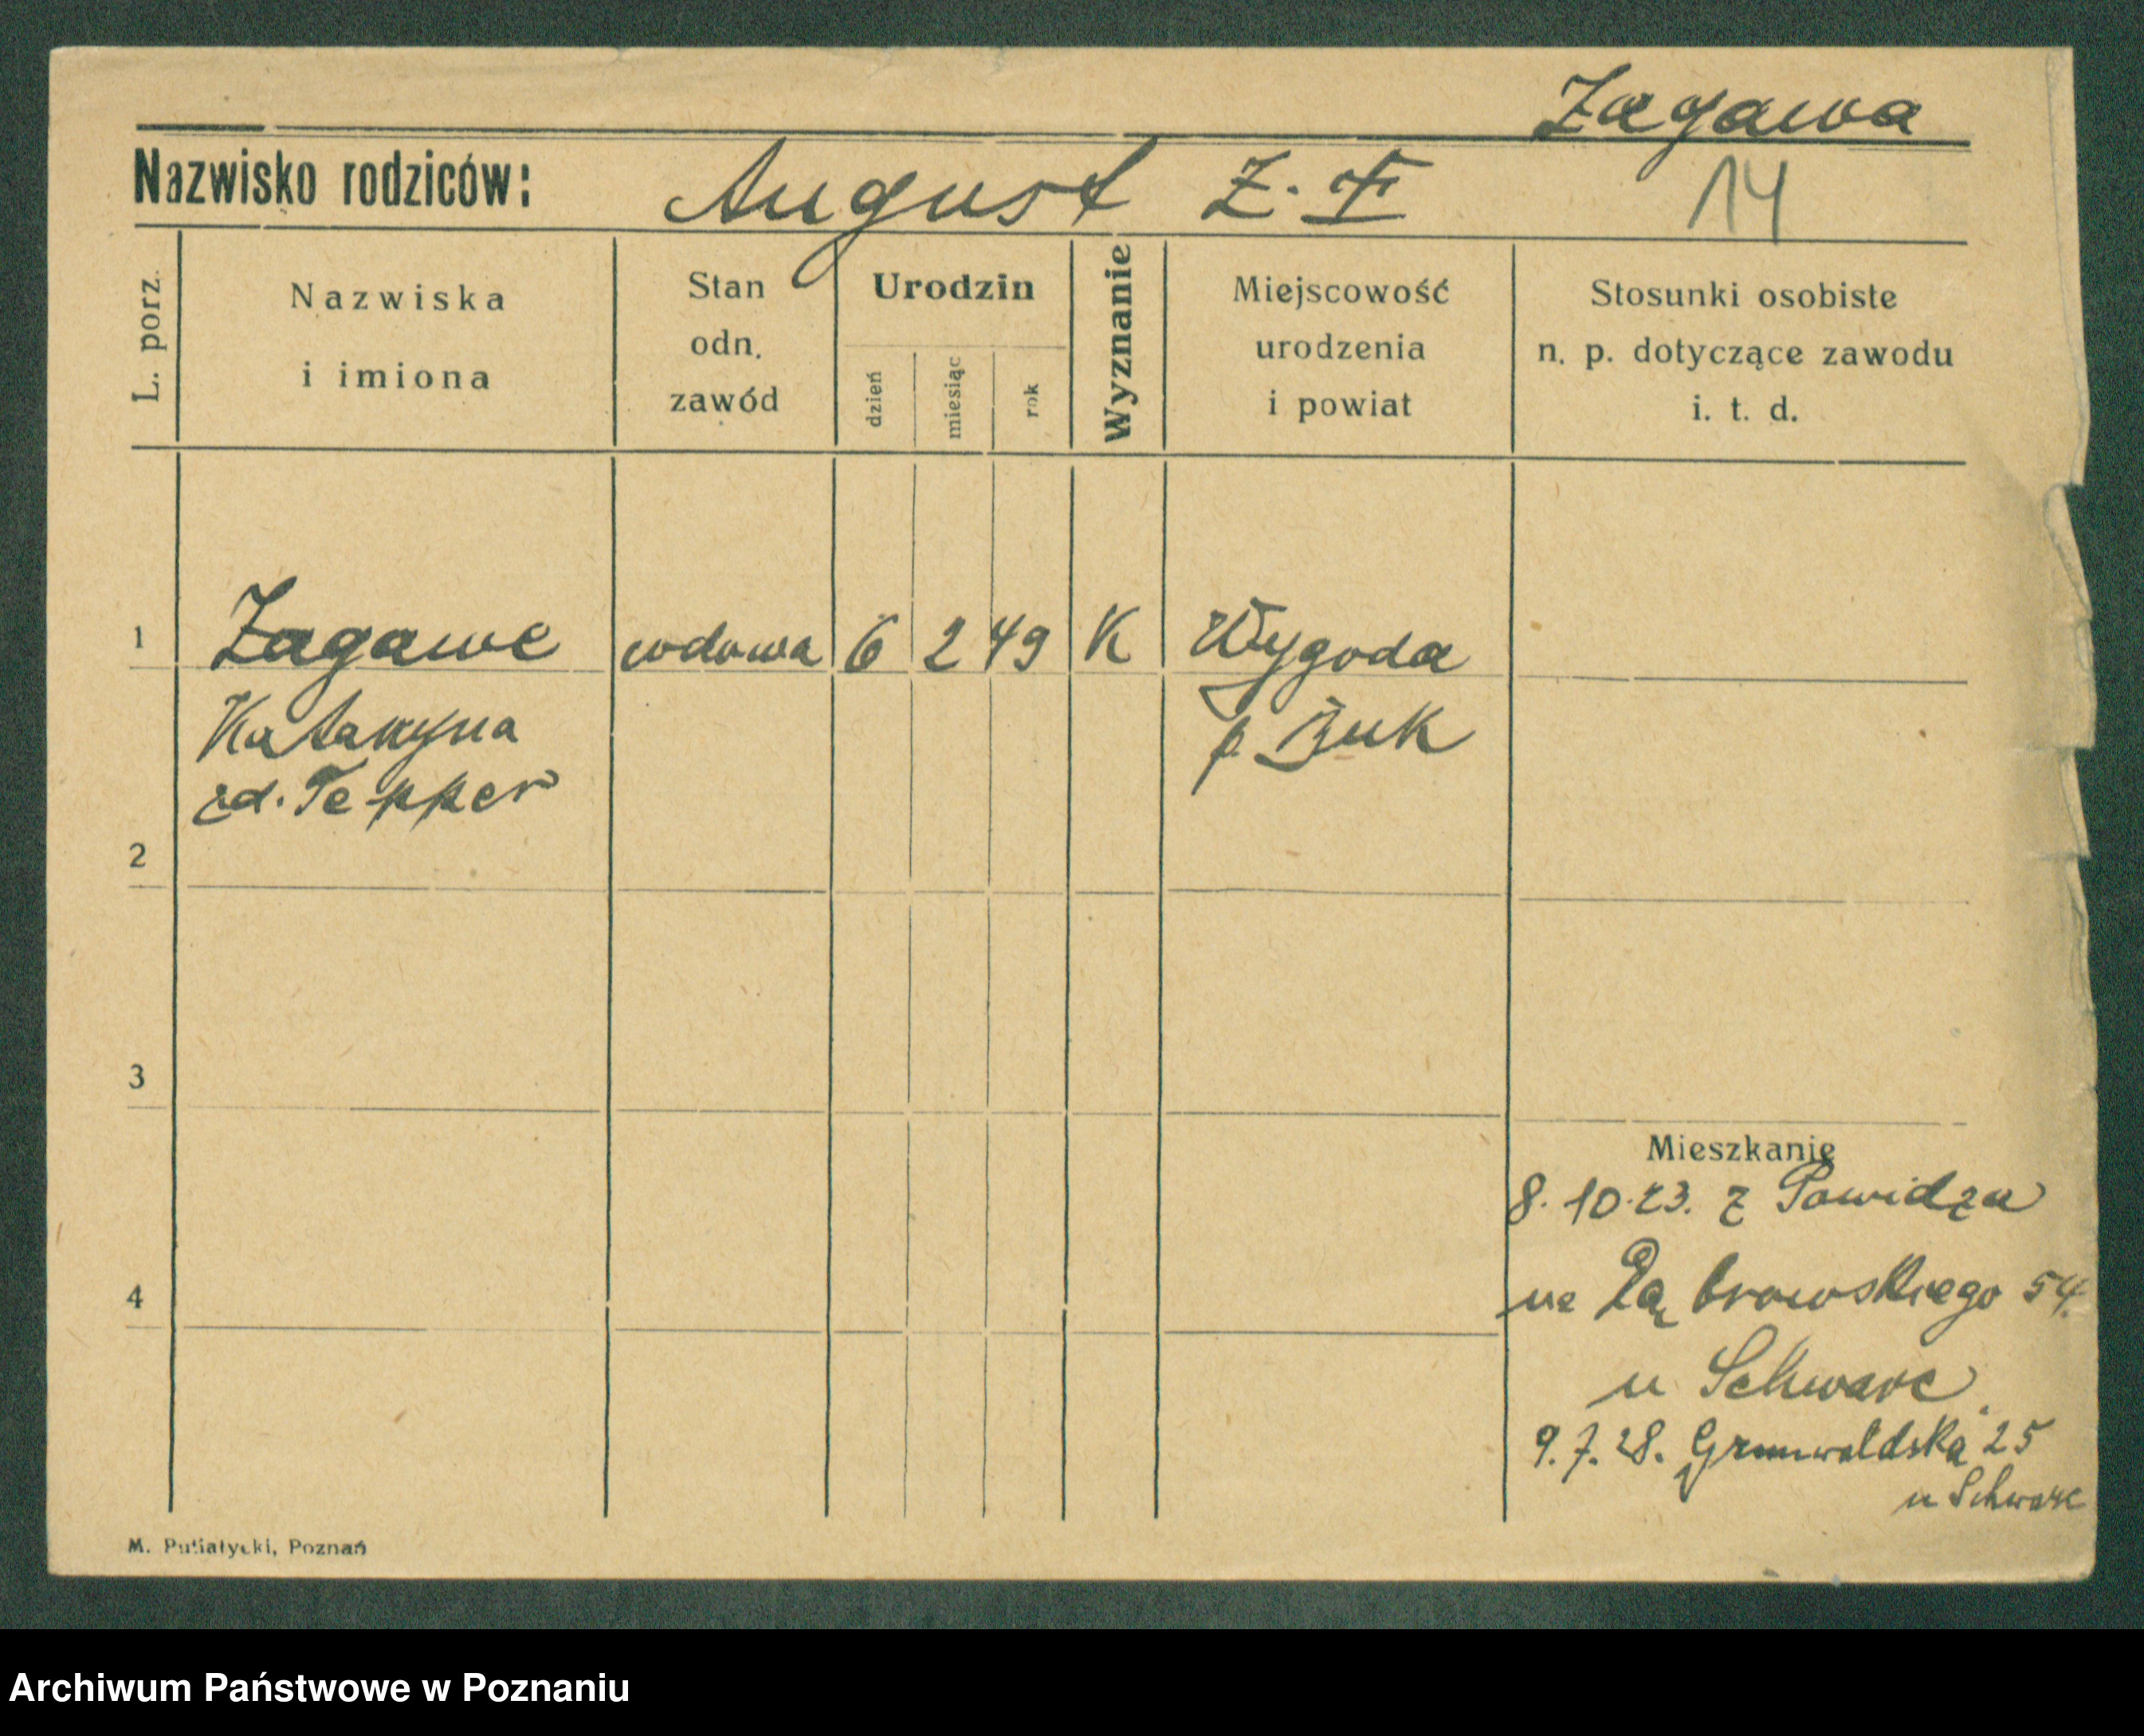 Zagawa
Nazwisko rodziców: August Z. F
14
L. porz. Nazwiska i imiona Stan odn. zawód Urodzin dzień miesiąc rok Wyznanie Miejscowość urodzenia i powiat Stosunki osobiste n. p. dotyczące zawodu i. t. d.
1 Zagawa wdowa 6 2 49 K Wygoda
Katarzyna p. Buk
zd. Tepper
2
3
Mieszkanie
8. 10. 23. z Powidza
4
na Dąbrowskiego 54.
u Schwarc.
9. 7. 28. Grunwaldska 25
u Schwarc
M. Putiatycki, Poznań
Archiwum Państwowe w Poznaniu